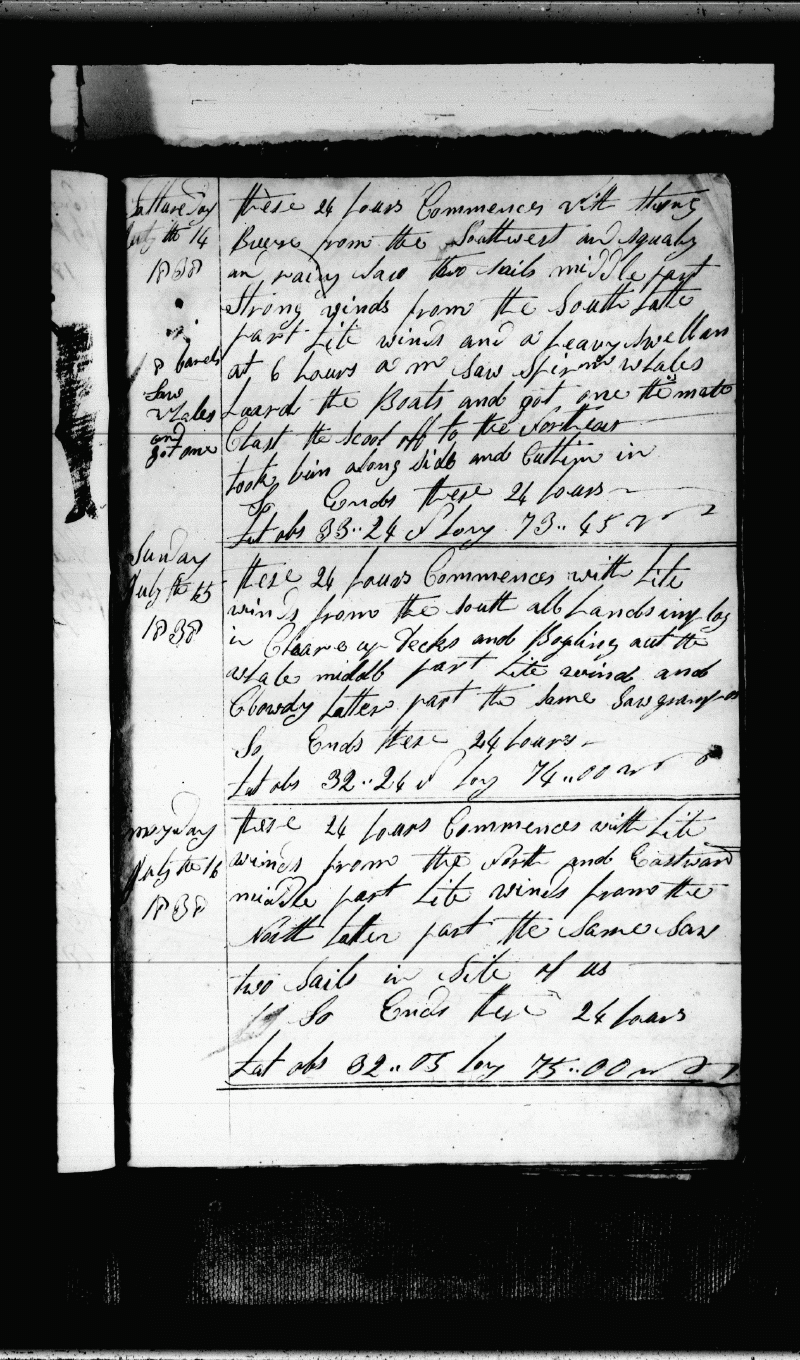 Satturday
July the 14
1838
8 barels
Saw
whales
and
got one
these 24 hours Commences with strong
Breese from the Southwest and squaly
and rainy Saw two sails middle part
Strong winds from the South Latte
part Lite winds and a heavy swell
at 6 hours a m Saw Spirm whales
Loard the Boats and got one the mate
Chast the scool off to the Northeas
took him along side and Cuttin in
So Ends these 24 hours
Lat obs 33..24 S long 73..45 w
Sunday
July the 15
1838
these 24 hours Commences with Lite
winds from the south all hands
in Cleare up Decks and Boyling out the
whale middle part Lite wind and
Clowdy Latter part the same Saw
So Ends these 24 hours
Lat obs 32..24 S long 74..00 w
monday
July the 16
1838
these 24 hours Commences with Lite
winds from the North and Eastward
middle part Lite winds from the
North latter part the same Saw
two Sails in Site of us
So Ends these 24 hours
Lat obs 32..05 long 75..00 w